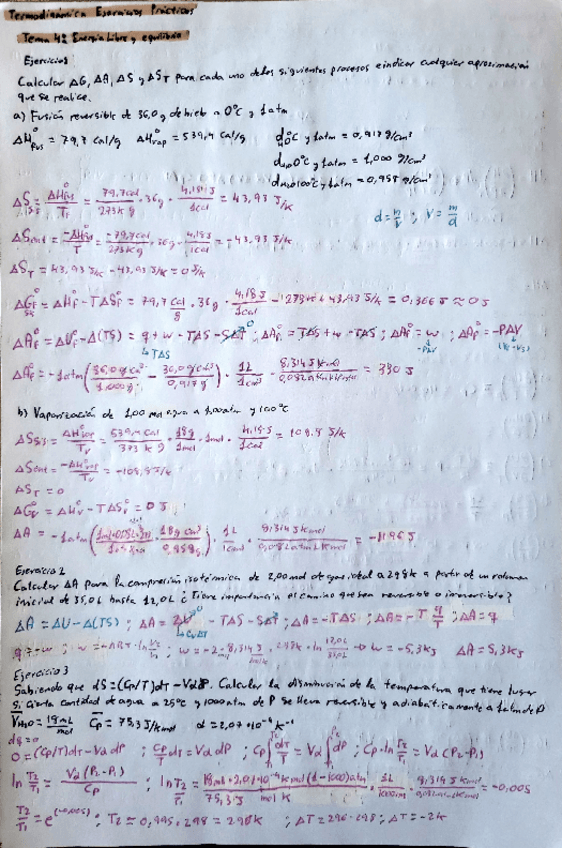 Termodinámica Ejercicios Prácticos
Tema 4: Energía Libre y equilibrio
Ejercicio 1
Calcular ΔG, ΔA, ΔS y ΔST para cada uno de los siguientes procesos e indicar cualquier aproximación
que se realice.
a) Fusión reversible de 36,0 g de hielo a 0°C y 1 atm
ΔH°fus = 79,7 cal/g ΔH°vap = 539,4 cal/g d 0°C y 1 atm = 0,917 g/cm³
dH2O 0°C y 1 atm = 1,000 g/cm³
dH2O 100°C y 1 atm = 0,958 g/cm³
ΔS = ΔH°fus/Tf = 79,7 cal/273 K g · 36 g · 4,184 J/1 cal = 43,93 J/K
d = m/V ; V = m/d
ΔSent = -ΔH°fus/T = -79,7 cal/273 K g · 36 g · 4,18 J/1 cal = -43,93 J/K
ΔST = 43,93 J/K - 43,93 J/K = 0 J/K
ΔG°f = ΔH°f - TΔS°f = 79,7 cal/g · 36 g · 4,18 J/1 cal - 273 K · 43,93 J/K = 0,366 J ≈ 0 J
ΔA°f = ΔU°f - Δ(TS) = q + w - TΔS - SΔT ; ΔA°f = TΔS + w - TΔS ; ΔA°f = w ; ΔA°f = -PΔV
↳ TΔS -PΔV
ΔA°f = -1 atm (36,0 g cm³/1,000 g - 36,0 g cm³/0,917 g) · 1L/ cm³ · 8,314 J K mol/0,082 atm L K mol = 330 J
b) Vaporización de 1,00 mol agua a 1,00 atm y 100°C
ΔS = ΔH°vap/Tv = 539,4 cal/373 K g · 18 g/1 mol · 1 mol · 4,18 J/1 cal = 108,8 J/K
ΔSent = -ΔH°vap/Tv = -108,8 J/K
ΔST = 0
ΔG°v = ΔH°v - TΔS°v = 0 J
ΔA = -1 atm ( - 18 g cm³/0,958 g) · 1L/ cm³ · 8,314 J K mol/0,082 atm L K mol =
Ejercicio 2
Calcular ΔA para la compresión isotérmica de 2,00 mol de gas ideal a 298 K a partir de un volumen
inicial de 35,0 L hasta 12,0 L ¿Tiene importancia el camino que sea reversible o irreversible?
ΔA = ΔU - Δ(TS) ; ΔA = ΔU - TΔS - SΔT ; ΔA = -TΔS ; ΔA = -T q/T ; ΔA = q
↳ CvΔT
q = -w ; w = -nRT · ln V2/V1 ; w = -2 · 8,314 J · 298 K · ln 12,0 L/35,0 L → w = -5,3 KJ ΔA = 5,3 KJ
Ejercicio 3
Sabiendo que dS = (Cp/T) dT - Vα dP. Calcular la disminución de la temperatura que tiene lugar
si cierta cantidad de agua a 25°C y 1000 atm de P se lleva reversible y adiabáticamente a 1 atm de P
V̄H2O = 18 mL/mol Cp = 75,3 J/K mol α = 2,07 · 10⁻⁴ K⁻¹
dq = 0
0 = (Cp/T) dT - Vα dP ; Cp/T dT = Vα dP ; Cp ∫ dT/T = Vα ∫ dP ; Cp · ln T2/T1 = Vα (P2 - P1)
ln T2/T1 = Vα (P2 - P1)/Cp ; ln T2/T1 = 18 mL · 2,07 · 10⁻⁴ K mol (1 - 1000) atm/75,3 J mol K · 1L/1000 mL · 8,314 J K mol/0,082 atm L K mol = -0,005
T2/T1 = e^(-0,005) ; T2 = 0,995 · 298 = 296 K ; ΔT = 296 - 298 ; ΔT = -2 K